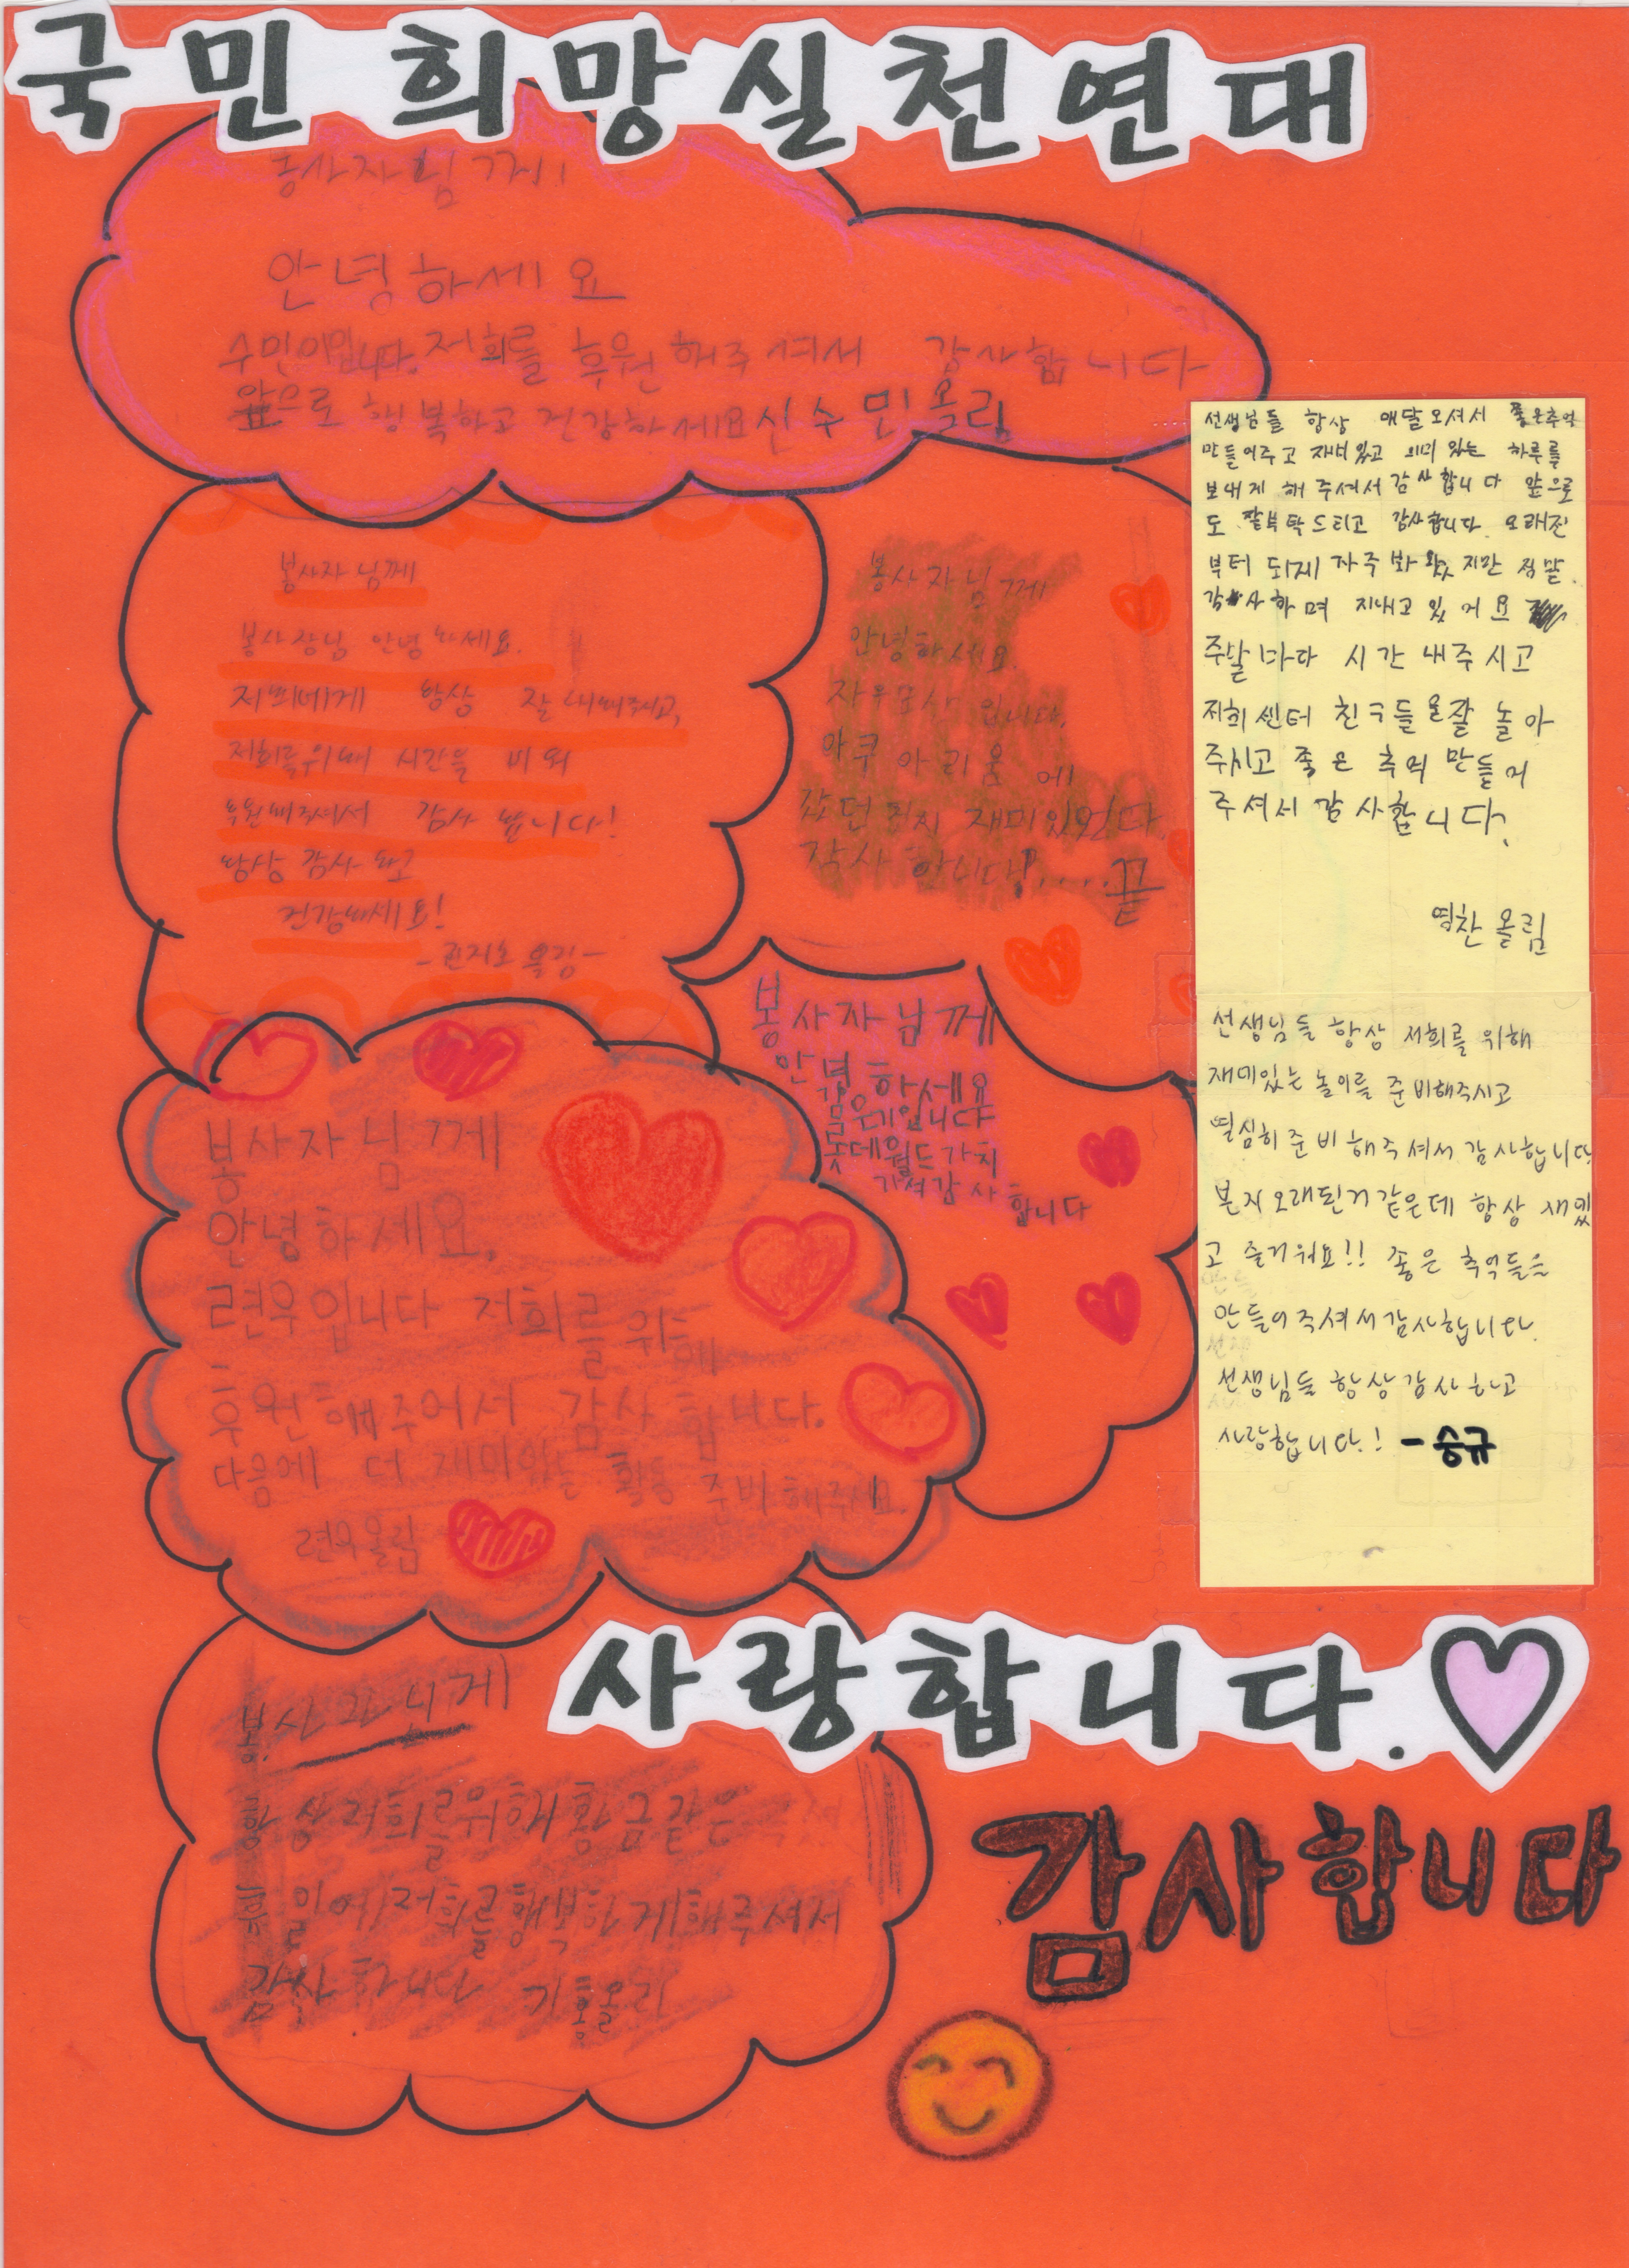 국민 희망실천연대
봉사자님께
안녕하세요
수민이입니다. 저희를 후원해주셔서 감사합니다
앞으로 행복하고 건강하세요 신수민올림
봉사자님께
봉사장님 안녕하세요.
저희에게 항상 잘 대해주시고,
저희를위해 시간을 비워
후원해주셔서 감사합니다!
항상 감사하고
건강하세요!
올림-
봉사자님께
안녕하세요.
입니다.
아쿠아리움에
갔던 것이 재미있었다
합니다!....끝
봉사자님께
안녕하세요
입니다
롯데월드 가치
가셔감사
합니다
봉사자님께
안녕하세요.
련우입니다 저희를 위해
후원해주어서 감사합니다.
다음에 더 재미있는 활동 준비해주세요.
련우올림
항상저희를위해황금같은
일에저희를행복하게해주셔서
감사합니다
선생님들 항상 매달오셔서 좋은추억
만들어주고 재미있고 의미 있는 하루를
보내게 해 주셔서 감사합니다 앞으로
도 잘부탁드리고 감사합니다. 오래전
부터 되게 자주 봐왔지만 정말
감사하며 지내고 있어요
주말마다 시간 내주시고
저희센터 친구들을잘 놀아
주시고 좋은 추억 만들어
주셔서 감사합니다.
영찬 올림
선생님들 항상 저희를 위해
재미있는 놀이를 준비해주시고
열심히 준비해주셔서 감사합니다
본지 오래된거같은데 항상 재밌
고 즐거워요!! 좋은 추억들을
만들어주셔서감사합니다.
선생님들 항상감사하고
사랑합니다! - 승규
사랑합니다.♡
감사합니다